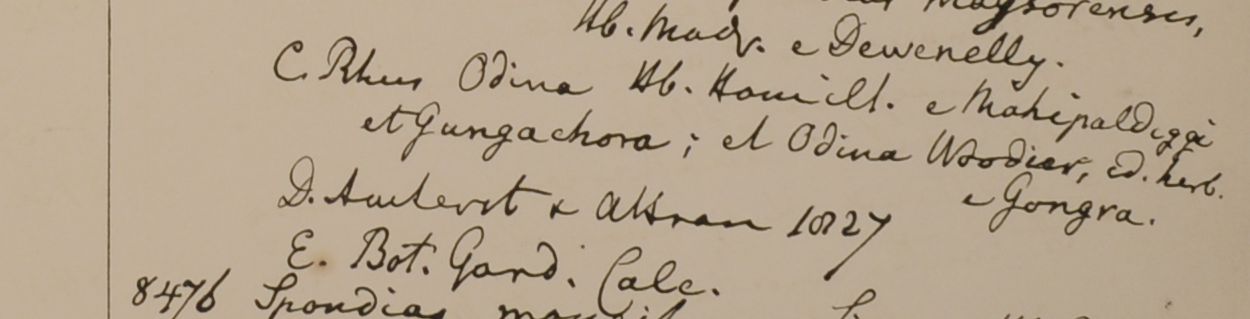 Maysorensis,
Hb. Madr. e Dewenelly.
C. Rhus Odina Hb. Hamilt. e Mahipaldiggi
et Gungachora; et Odina Woodier, ed. herb.
e Gongra.
D. Amherst & Attran 1827
E. Bot. Gard. Calc.
8476 Spondias